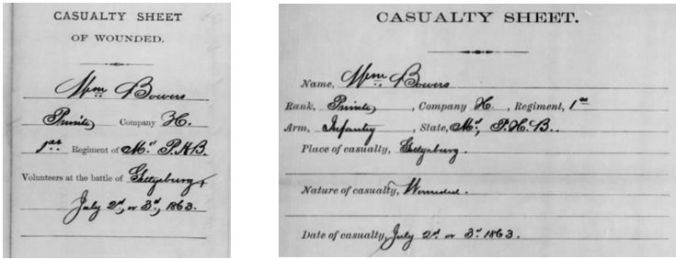 CASUALTY SHEET
OF WOUNDED.
Wm Bowers
Private, Company H.
1st Regiment of Md P.H.B.
Volunteers at the battle of Gettysburg,
July 2d, or 3d, 1863.
CASUALTY SHEET.
Name, Wm Bowers
Rank, Private, Company H, Regiment, 1st
Arm, Infantry, State, Md, P.H.B.
Place of casualty, Gettysburg.
Nature of casualty, Wounded.
Date of casualty, July 2d or 3d 1863.